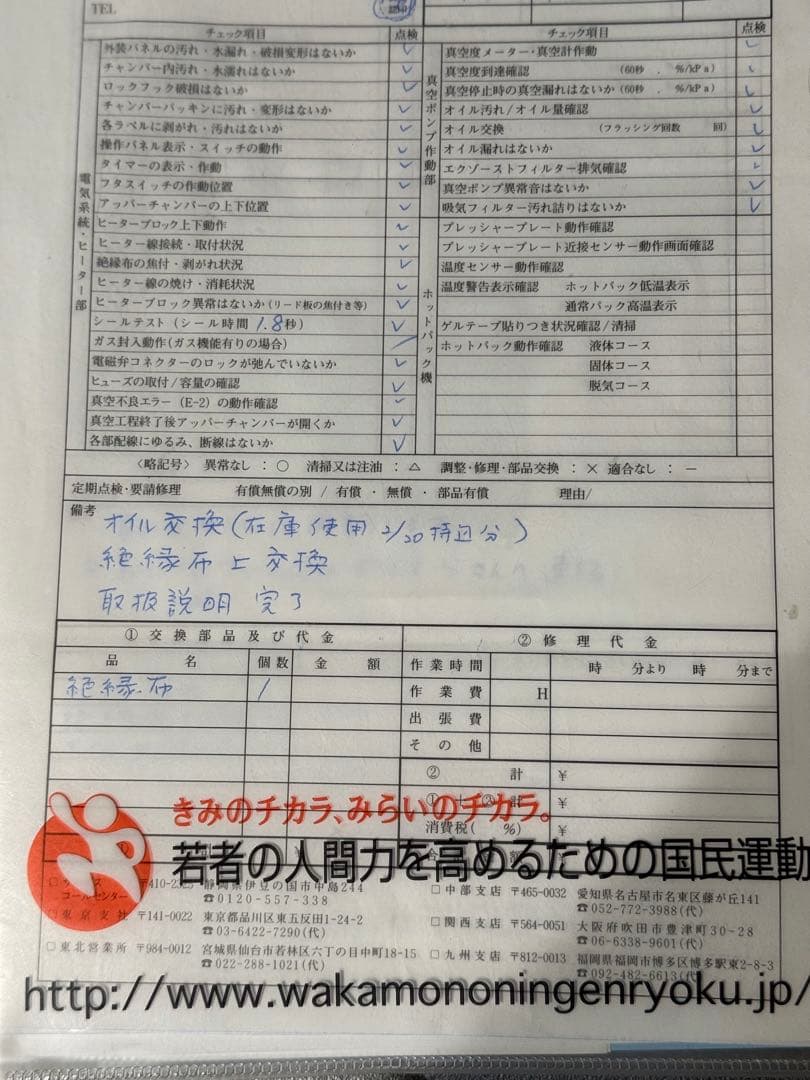 TEL
チェック項目 点検
電気系統・ヒーター部
外装パネルの汚れ・水漏れ・破損変形はないか ✓
チャンバー内汚れ・水濡れはないか ✓
ロックフック破損はないか ✓
チャンバーパッキンに汚れ・変形はないか ✓
各ラベルに剥がれ・汚れはないか ✓
操作パネル表示・スイッチの動作 ✓
タイマーの表示・作動 ✓
フタスイッチの作動位置 ✓
アッパーチャンバーの上下位置 ✓
ヒーターブロック上下動作 ✓
ヒーター線接続・取付状況 ✓
絶縁布の焦付・剥がれ状況 ✓
ヒーター線の焼け・消耗状況 ✓
ヒーターブロック異常はないか(リード板の焦付き等) ✓
シールテスト(シール時間 1.8秒) ✓
ガス封入動作(ガス機能有りの場合) ／
電磁弁コネクターのロックが弛んでいないか ✓
ヒューズの取付/容量の確認 ✓
真空不良エラー(E-2)の動作確認 ✓
真空工程終了後アッパーチャンバーが開くか ✓
各部配線にゆるみ、断線はないか ✓
チェック項目 点検
真空ポンプ作動部
真空度メーター・真空計作動 ✓
真空度到達確認 (60秒 . %/kPa) ✓
真空停止時の真空漏れはないか(60秒 . %/kPa) ✓
オイル汚れ/オイル量確認 ✓
オイル交換 (フラッシング回数 回) ✓
オイル漏れはないか ✓
エクゾーストフィルター排気確認 ✓
真空ポンプ異常音はないか ✓
吸気フィルター汚れ詰りはないか ✓
ホットパック機
プレッシャープレート動作確認
プレッシャープレート近接センサー動作画面確認
温度センサー動作確認
温度警告表示確認 ホットパック低温表示
通常パック高温表示
ゲルテープ貼りつき状況確認/清掃
ホットパック動作確認 液体コース
固体コース
脱気コース
〈略記号〉 異常なし：○ 清掃又は注油：△ 調整・修理・部品交換：× 適合なし：－
定期点検・要請修理 有償無償の別 / 有償・無償・部品有償 理由/
備考
オイル交換(在庫使用 2/20持込分)
絶縁布上交換
取扱説明 完了
①交換部品及び代金 ②修理代金
品名 個数 金額 作業時間 時 分より 時 分まで
絶縁布 1 作業費 H
出張費
その他
② 計 ￥
計 ￥
消費税( %) ￥
きみのチカラ、みらいのチカラ。
若者の人間力を高めるための国民運動
コールセンター 静岡県伊豆の国市中島244
☎0120-557-338
□東京支社 〒141-0022 東京都品川区東五反田1-24-2
☎03-6422-7290(代)
□東北営業所 〒984-0012 宮城県仙台市若林区六丁の目中町18-15
☎022-288-1021(代)
□中部支店 〒465-0032 愛知県名古屋市名東区藤が丘141
☎052-772-3988(代)
□関西支店 〒564-0051 大阪府吹田市豊津町30-28
☎06-6338-9601(代)
□九州支店 〒812-0013 福岡県福岡市博多区博多駅東2-8-3
☎092-482-6613(代)
http://www.wakamononingenryoku.jp/